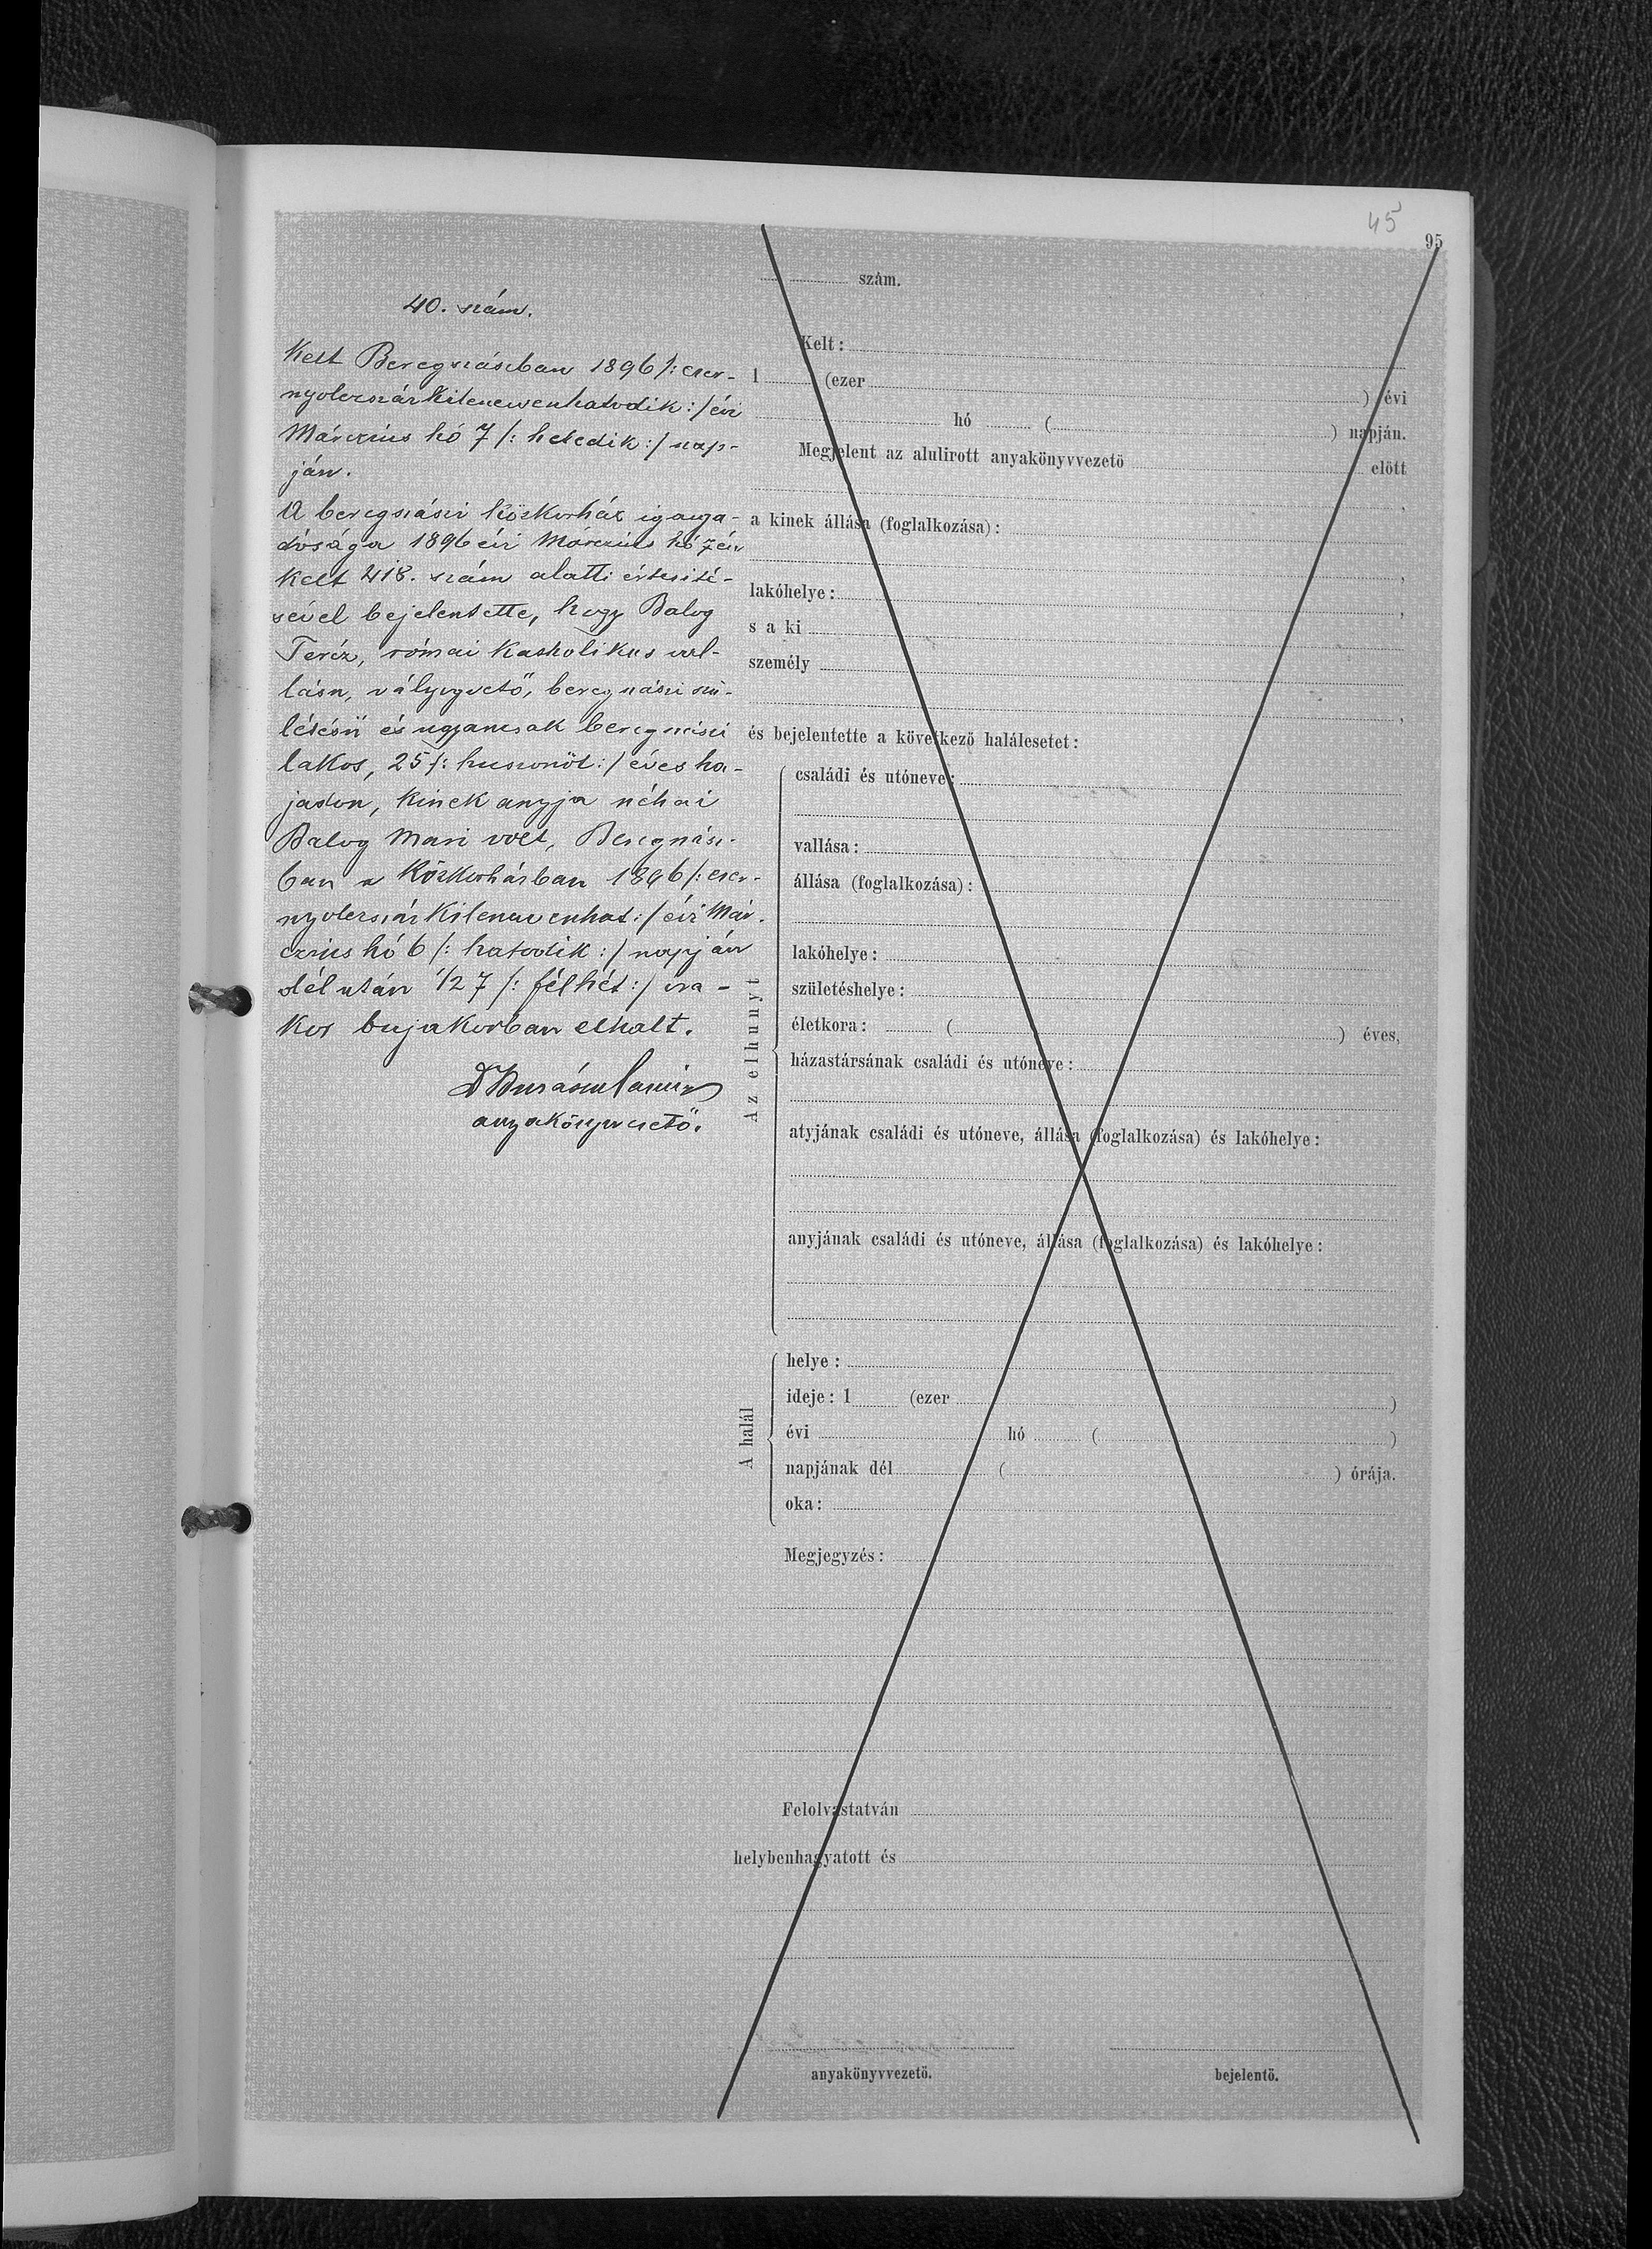 45
95
40. szám.
Kelt Beregszászban 1896 /: ezer-
nyolczszázkilenczvenhatodik :/ évi
Márczius hó 7 /: hetedik :/ nap-
ján.
A beregszászi közkorház igazga-
tósága 1896 évi Marczius hó 7én
kelt 418. szám alatti értesité-
sével bejelentette, hogy Balog
Teréz, római katholikus val-
lásu, vályogvető, beregszászi szü-
letésü és ugyancsak beregszászi
lakos, 25 /: huszonöt :/ éves ha-
jadon, kinek anyja néhai
Balog Mari volt, Beregszász-
ban a Közkorházban 1896 /: ezer-
nyolczszázkilenczvenhat :/ évi Már-
czius hó 6 /: hatodik :/ napján
délután 1/2 7 /: félhét :/ óra-
kor bujakorban elhalt.
anyakönyvvezető.
szám.
Kelt :
1 (ezer ) évi
hó ( ) napján.
Megjelent az alulirott anyakönyvvezető előtt
,
a kinek állása (foglalkozása) :
,
lakóhelye : ,
s a ki
személy
,
és bejelentette a következő halálesetet :
Az elhunyt
családi és utóneve :
vallása :
állása (foglalkozása) :
lakóhelye :
születéshelye :
életkora : ( ) éves,
házastársának családi és utóneve :
atyjának családi és utóneve, állása (foglalkozása) és lakóhelye :
anyjának családi és utóneve, állása (foglalkozása) és lakóhelye :
A halál
helye :
ideje : 1 (ezer )
évi hó ( )
napjának dél ( ) órája.
oka :
Megjegyzés :
Felolvastatván
helybenhagyatott és
anyakönyvvezető.
bejelentő.